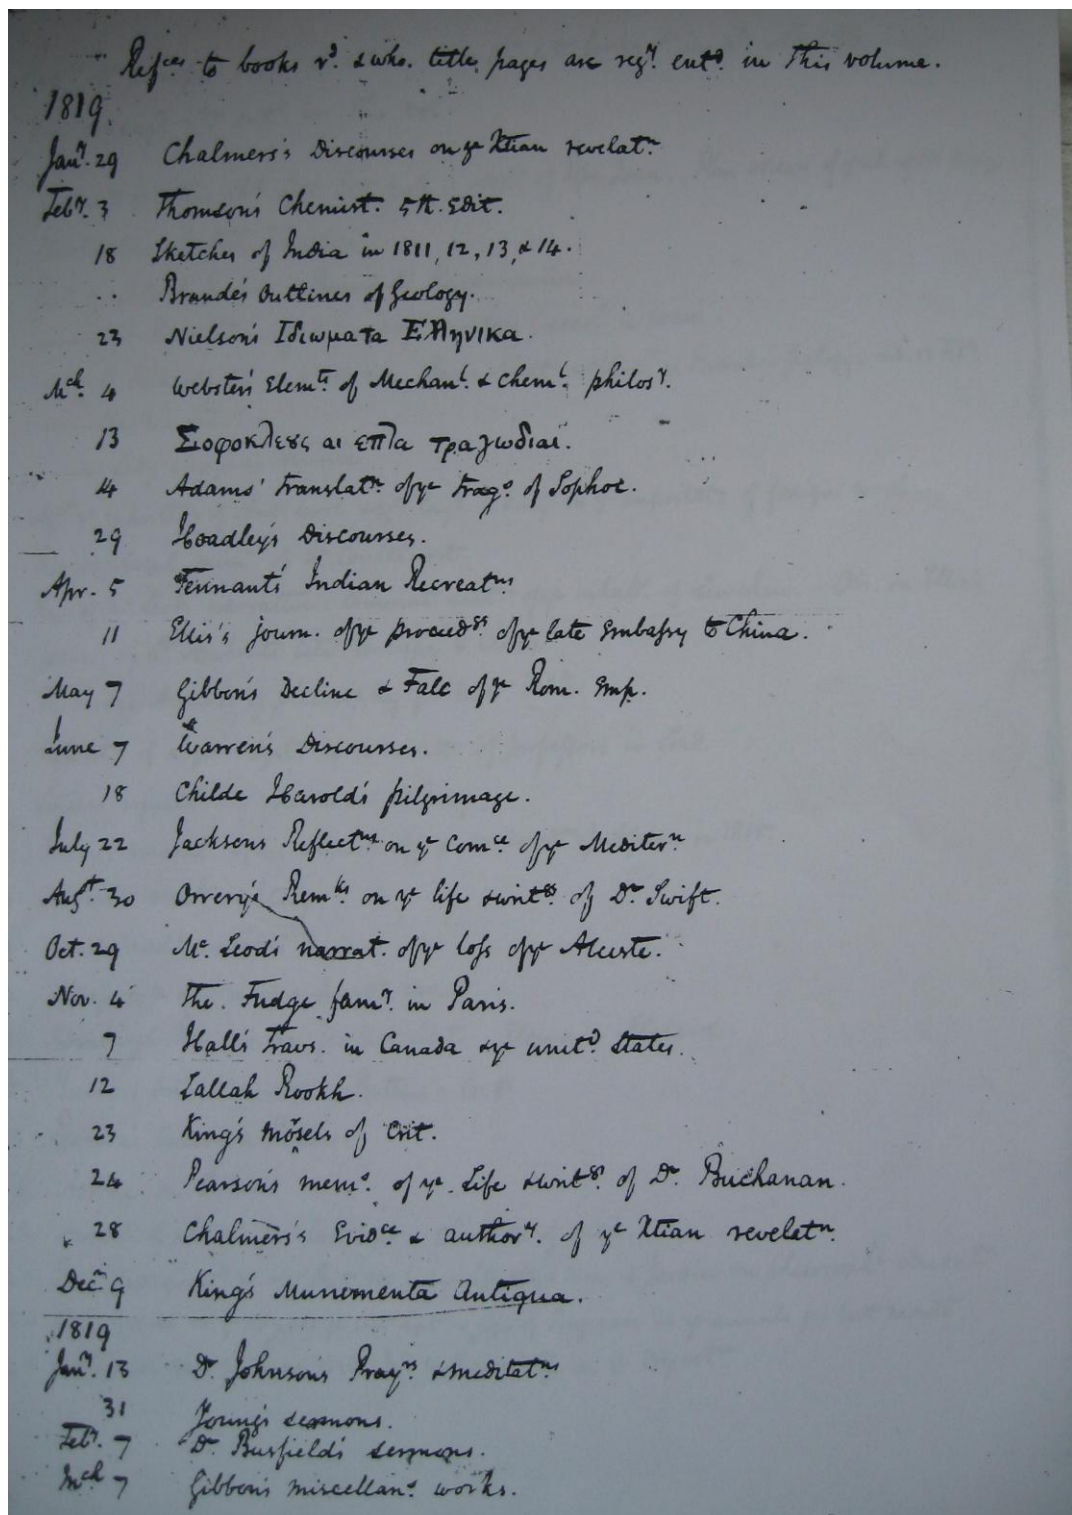 Ref.ces to books r.d & who. title pages are reg.y ent.d in this volume.
1819.
Jan.y 29 Chalmers's Discourses on ye Xtian revelat.n
Feb.y 3 Thomson's Chemist. 5th. Edit.
18 Sketches of India in 1811, 12, 13, & 14.
.. Brande's Outlines of Geology.
23 Nielson's Ιδιωματα Ελληνικα.
M.ch 4 Webster's Elem.ts of Mechan.l & Chem.l philos.y.
13 Σοφοκλευς αι επλα τραγωδιαι.
14 Adams' translat.n of ye trag.s of Sophoc.
29 Hoadley's Discourses.
Apr. 5 Tennant's Indian Recreat.ns
11 Ellis's journ. of ye proceed.gs of ye late Embassy to China.
May 7 Gibbon's Decline & Fall of ye Rom. Emp.
June 7 Warren's Discourses.
18 Childe Harold's pilgrimage.
July 22 Jackson's Reflect.ns on ye Com.ce of ye Mediter.n
Aug.st 30 Orrery's Rem.ks on ye life & writ.gs of D.r Swift.
Oct. 29 M.c Leod's narrat. of ye loss of ye Alceste.
Nov. 4 The Fudge fam.y in Paris.
7 Hall's Travs. in Canada & ye unit.d States.
12 Lallah Rookh.
23 King's Morsels of Crit.
24 Pearson's mem.s of ye Life & writ.gs of D.r Buchanan.
28 Chalmers's Evid.ce & author.y of ye Xtian revelat.n
Dec.r 9 King's Munimenta Antiqua.
1819
Jan.y 13 D.r Johnson's Pray.rs & meditat.ns
31 Young's sermons.
Feb.y 7 D.r Busfield's sermons.
M.ch 7 Gibbon's miscellan.s works.